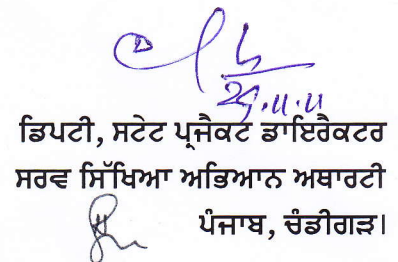 29.11.11
ਡਿਪਟੀ, ਸਟੇਟ ਪ੍ਰਜੈਕਟ ਡਾਇਰੈਕਟਰ
ਸਰਵ ਸਿੱਖਿਆ ਅਭਿਆਨ ਅਥਾਰਟੀ
ਪੰਜਾਬ, ਚੰਡੀਗੜ।